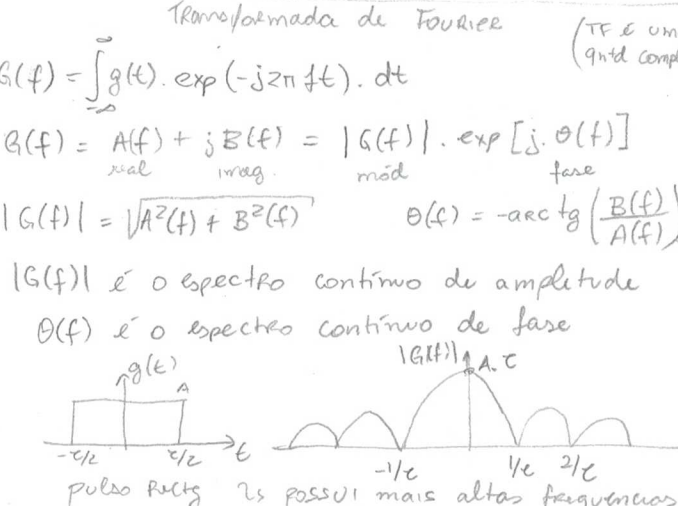 Transformada de FOURIER
(TF é um
qntd compl
G(f) = ∫ g(t). exp(-j2π ft). dt
∞
-∞
G(f) = A(f) + jB(f) = |G(f)|. exp[j. θ(f)]
real imag. mód fase
|G(f)| = √A²(f) + B²(f) θ(f) = -arc tg (B(f)/A(f))
|G(f)| é o espectro contínuo de amplitude
θ(f) é o espectro contínuo de fase
g(t) A |G(f)| A.τ
-τ/2 τ/2 t -1/τ 1/τ 2/τ
pulso Rectg possui mais altas frequências